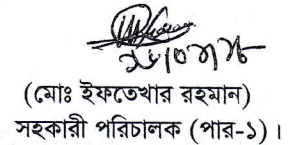 (মোঃ ইফতেখার রহমান)
সহকারী পরিচালক (পার-১)।